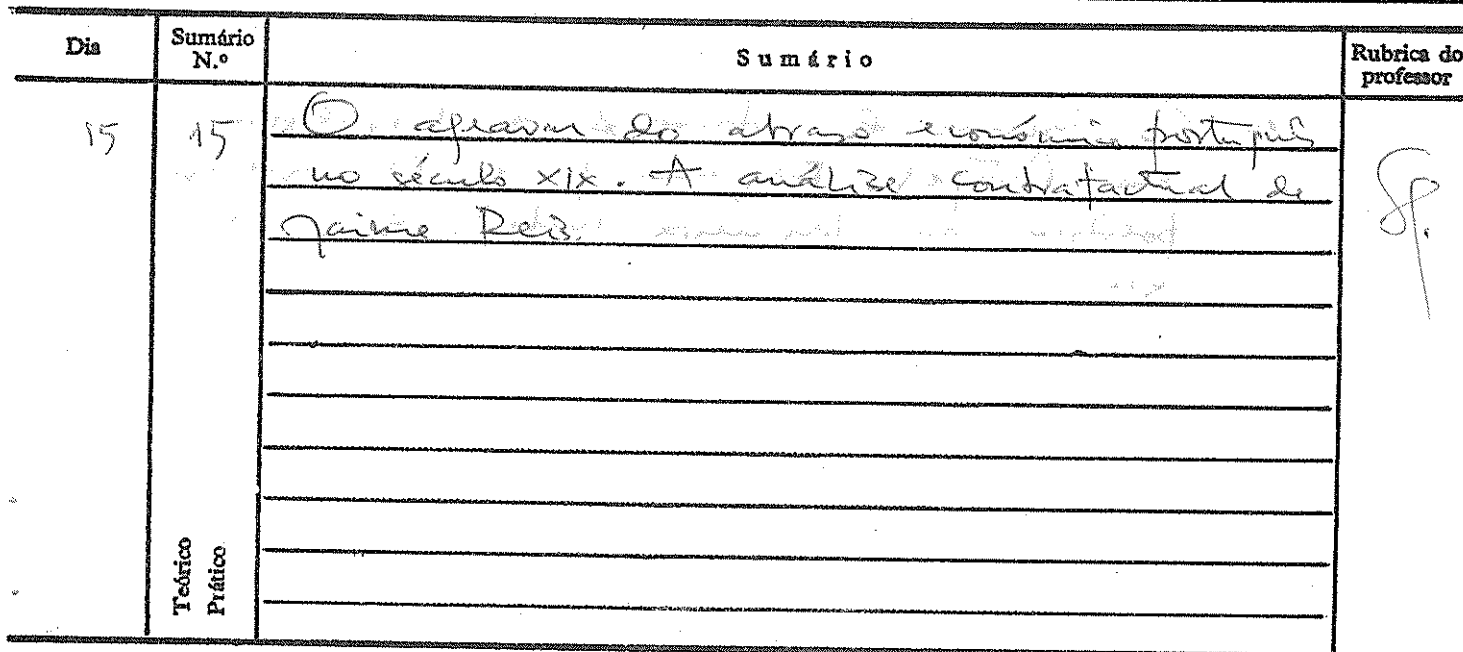 Dia
Sumário N.º
Sumário
Rubrica do professor
15
15
O agravar do atraso económico português
no século XIX. A análise contrafactual de
Jaime Reis.
Teórico
Prático